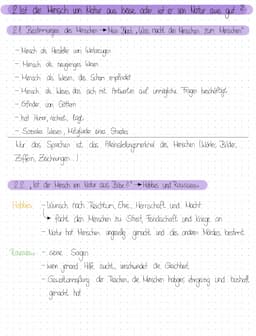 2. Ist der Mensch von Natur aus böse oder ist er von Natur aus gut?
2.1 Bestimmungen des Menschen → Max Black „Was macht die Menschen zum Menschen"
- Mensch als Hersteller von Werkzeugen
- Mensch als neugieriges Wesen
- Mensch als Wesen, das Scham empfindet
- Mensch als Wesen, das sich mit Antworten auf unmögliche Fragen beschäftigt
- Erfinder von Göttern
- hat Humor, lacht, lügt
- Soziales Wesen, Mitglieder eines Staates
Nur das Sprechen ist das Alleinstellungsmerkmal des Menschen (Wörter, Bilder,
Ziffern, Zeichnungen...)
2.2 „Ist der Mensch von Natur aus Böse?" → Hobbes und Rousseau
Hobbes: - Wunsch nach Reichtum, Ehre, Herrschaft und Macht
↳ führt den Menschen zu Streit, Feindschaft und Kriege an
- Natur hat Menschen ungesellig gemacht und das anderen Mordes bestimmt
Rousseau: - siehe Sorgen
- wenn jemand Hilfe sucht, verschwindet die Gleichheit
- die Reichen, die Menschen habgierig, ehrgeizig und boshaft
gemacht hat